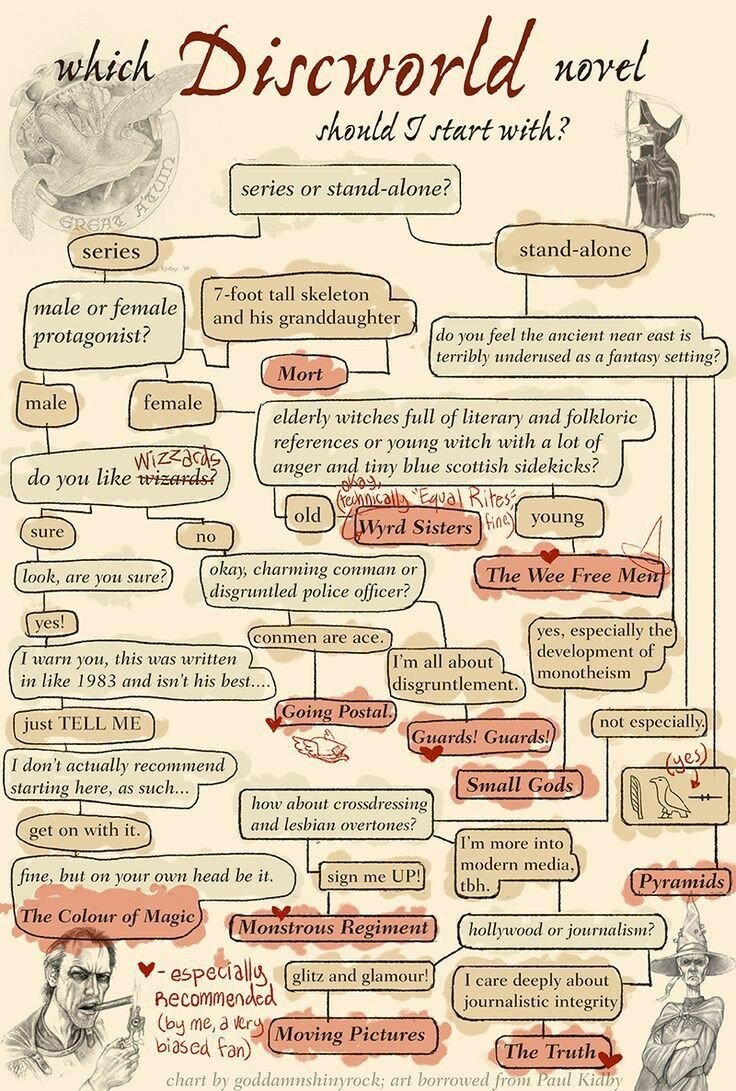 which Discworld novel
should I start with?
GREAT ATUIN
series or stand-alone?
series
stand-alone
male or female
protagonist?
7-foot tall skeleton
and his granddaughter
Mort
do you feel the ancient near east is
terribly underused as a fantasy setting?
male
female
elderly witches full of literary and folkloric
references or young witch with a lot of
anger and tiny blue scottish sidekicks?
wizzards
do you like wizards?
okay,
(technically "Equal Rites",
fine)
old
Wyrd Sisters
young
The Wee Free Men
sure
no
look, are you sure?
okay, charming conman or
disgruntled police officer?
yes!
conmen are ace.
I'm all about
disgruntlement.
yes, especially the
development of
monotheism
I warn you, this was written
in like 1983 and isn't his best....
Going Postal.
Guards! Guards!
Small Gods
not especially.
(yes)
Pyramids
just TELL ME
I don't actually recommend
starting here, as such...
get on with it.
fine, but on your own head be it.
The Colour of Magic
how about crossdressing
and lesbian overtones?
sign me UP!
Monstrous Regiment
I'm more into
modern media,
tbh.
hollywood or journalism?
glitz and glamour!
Moving Pictures
I care deeply about
journalistic integrity
The Truth
- especially
recommended
(by me, a very
biased fan)
chart by goddamnshinyrock; art borrowed from Paul Kidby